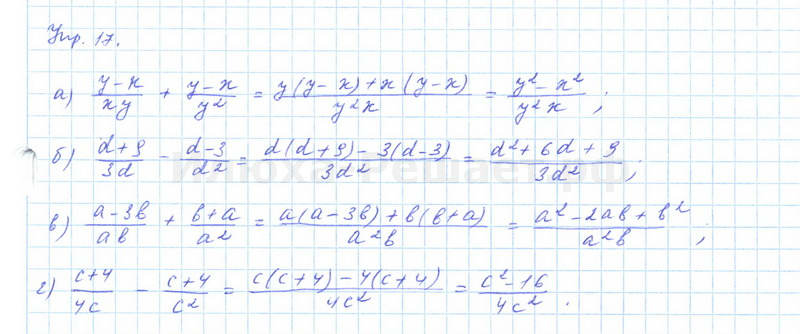 Упр. 17.
а) (y-x)/(xy) + (y-x)/(y²) = (y(y-x)+x(y-x))/(y²x) = (y²-x²)/(y²x);
б) (d+9)/(3d) - (d-3)/(d²) = (d(d+9)-3(d-3))/(3d²) = (d²+6d+9)/(3d²);
в) (a-3b)/(ab) + (b+a)/(a²) = (a(a-3b)+b(b+a))/(a²b) = (a²-2ab+b²)/(a²b);
г) (c+4)/(4c) - (c+4)/(c²) = (c(c+4)-4(c+4))/(4c²) = (c²-16)/(4c²).